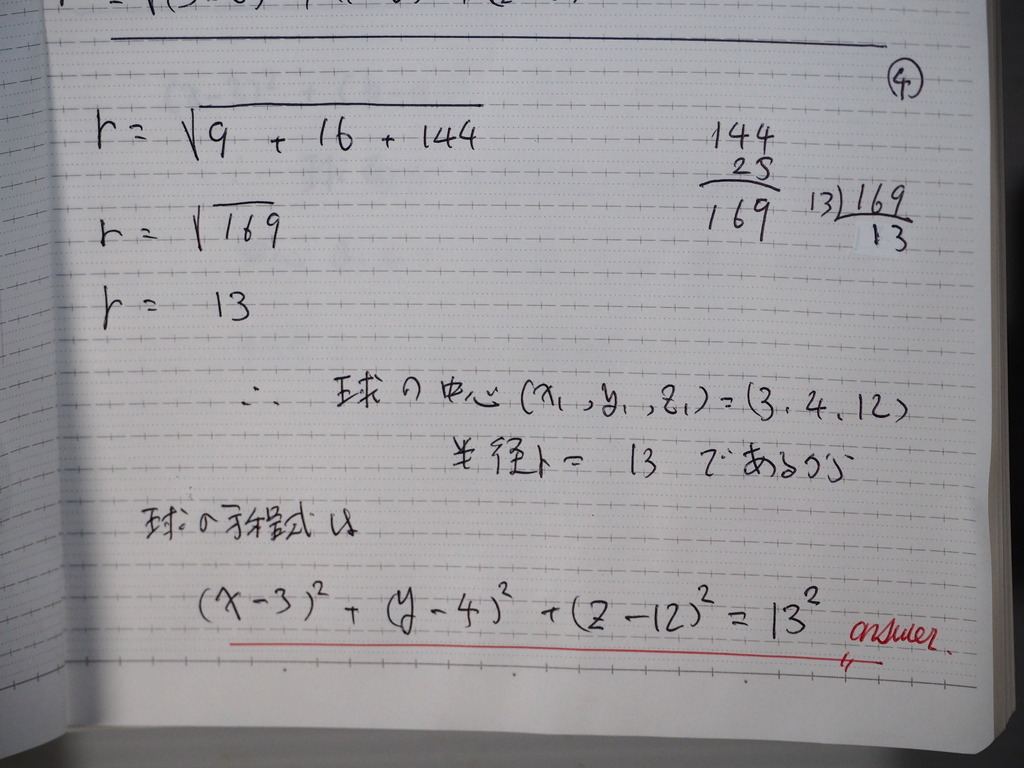 ④
r = √9 + 16 + 144
144
25
169
13)169
13
r = √169
r = 13
∴ 球の中心 (x₁, y₁, z₁) = (3, 4, 12)
半径 r = 13 であるから
球の方程式は
(x - 3)² + (y - 4)² + (z - 12)² = 13²
answer.